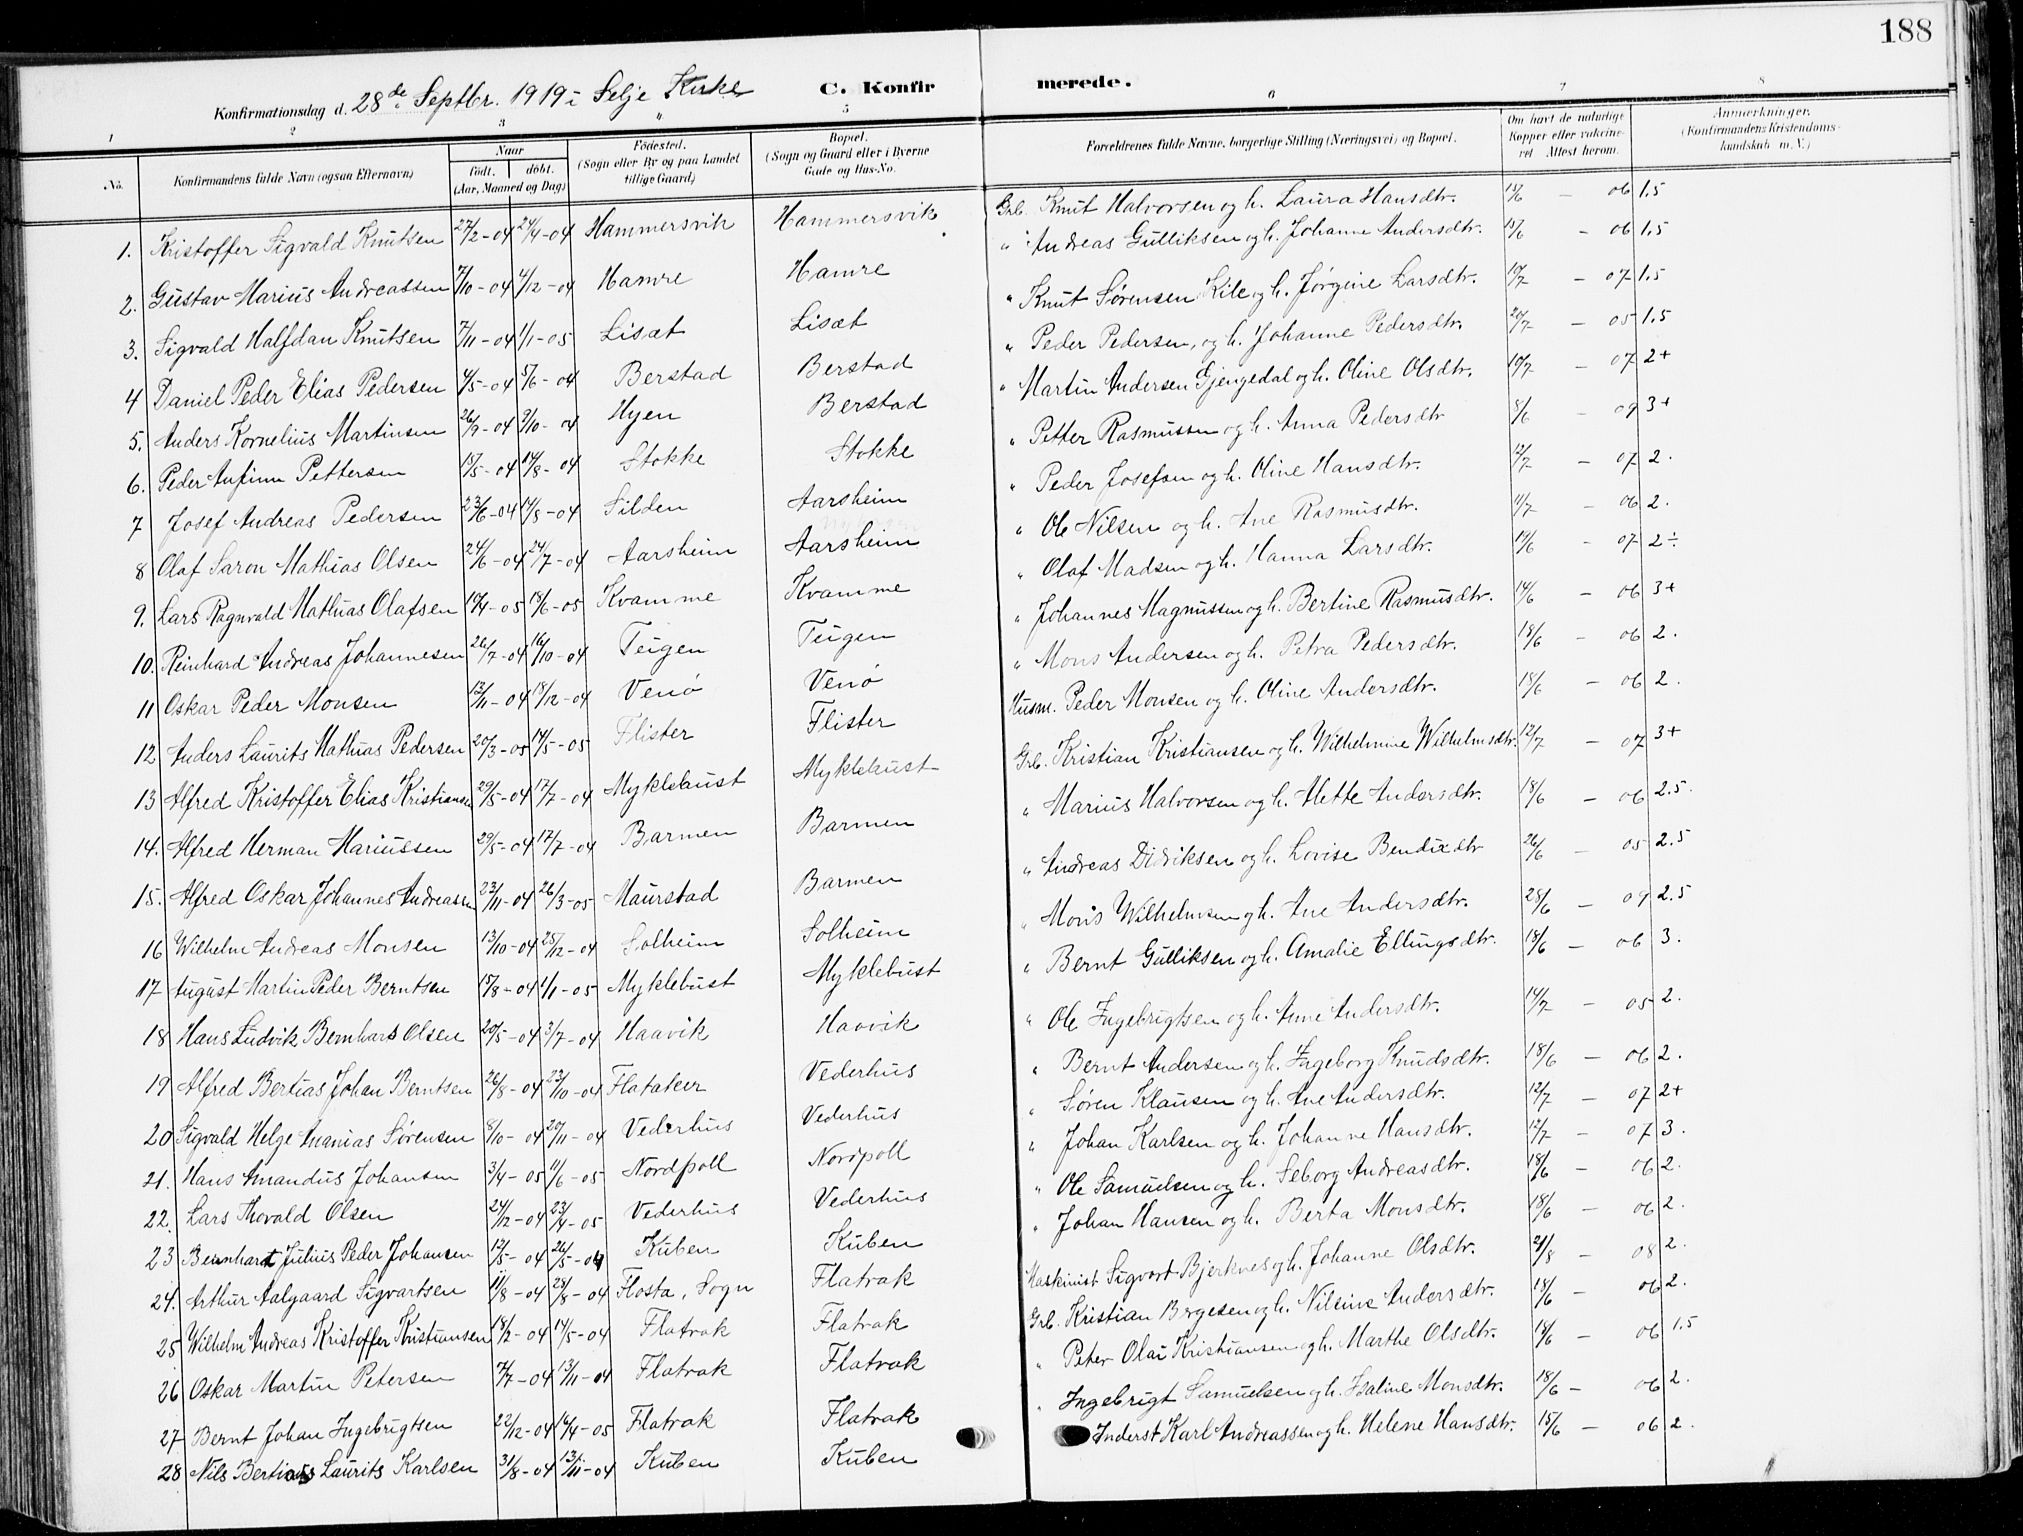 188
Konfirmationsdag d. 28de Septbr. 1919 i Selje Kirke C. Konfirmerede.
1 2 3 4 5 6 7 8
No. Konfirmandens fulde Navn (ogsaa Efternavn) Naar født. døbt. (Aar, Maaned og Dag) Fødested. (Sogn eller By og paa Landet tillige Gaard) Bopæl. (Sogn og Gaard eller i Byerne Gade og Hus-No. Forældrenes fulde Navne, borgerlige Stilling (Næringsvei) og Bopæl. Om havt de naturlige Kopper eller vakcineret. Attest herom. Anmærkninger. (Konfirmandens Kristendomskundskab m. V.)
1. Kristoffer Sigvald Knutsen 27/2-04 24/4-04 Hammersvik Hammersvik Grb. Knut Halvorsen og h. Laura Hansdtr. 15/6 - 06 1.5
2. Gustav Marius Andreassen 7/10-04 4/12-04 Hamre Hamre " Andreas Gulliksen og h. Johanne Andersdtr. 15/6 - 06 1.5
3. Sigvald Halfdan Knutsen 7/11-04 1/1-05 Lisæt Lisæt " Knut Sørensen Kile og h. Jørgine Larsdtr. 10/7 - 07 1.5
4 Daniel Peder Elias Pedersen 4/5-04 5/6-04 Berstad Berstad " Peder Pedersen, og h. Johanne Pedersdtr. 20/7 - 05 1.5
5. Anders Kornelius Martinsen 26/9-04 9/10-04 Hyen Berstad " Martin Andersen Gjengedal og h. Oline Olsdtr. 10/7 - 07 2+
6. Peder Anfinn Pettersen 15/5-04 14/8-04 Stokke Stokke " Petter Rasmussen og h. Anna Pedersdtr 8/6 - 09 3+
7 Josef Andreas Pedersen 23/6-04 14/8-04 Silden Aarsheim " Peder Josefsen og h. Oline Hansdtr. 12/7 - 07 2.
8 Olaf Saron Mathias Olsen 24/6-04 24/7-04 Aarsheim Aarsheim " Ole Nilsen og h. Ane Rasmusdtr. 11/7 - 06 2.
9. Lars Ragnvald Mathias Olafsen 10/4-05 18/6-05 Kvamme Kvamme " Olaf Madsen og h. Hanna Larsdtr. 14/6 - 07 2÷
10. Reinhard Andreas Johannesen 26/7-04 16/10-04 Teigen Teigen " Johannes Magnussen og h. Bertine Rasmusdtr. 14/6 - 06 3+
11 Oskar Peder Monsen 13/11-04 18/12-04 Venø Venø " Mons Andersen og h. Petra Pedersdtr. 18/6 - 06 2.
12 Anders Laurits Mathias Pedersen 20/3-05 14/5-05 Flister Flister Husm. Peder Monsen og h. Oline Andersdtr. 18/6 - 06 2.
13 Alfred Kristoffer Elias Kristiansen 29/5-04 17/7-04 Myklebust Myklebust Grb. Kristian Kristiansen og h. Wilhelmine Wilhelmsdtr. 12/7 - 07 3+
14. Alfred Herman Mariussen 29/5-04 17/7-04 Barmen Barmen " Marius Halvorsen og h. Mette Andersdtr. 18/6 - 06 2.5.
15. Alfred Oskar Johannes Andreassen 23/11-04 26/3-05 Maurstad Barmen " Andreas Didriksen og h. Lovise Bendixdtr 26/6 - 05 2.5
16 Wilhelm Andreas Monsen 13/10-04 25/12-04 Solheim Solheim " Mons Wilhelmsen og h. Ane Andersdtr. 28/6 - 09 2.5
17 August Martin Peder Berntsen 15/8-04 1/1-05 Myklebust Myklebust " Bernt Gulliksen og h. Amalie Ellingsdtr. 18/6 - 06 3.
18 Hans Ludvik Bernhard Olsen 20/5-04 3/7-04 Haavik Haavik " Ole Ingebrigtsen og h. Anne Andersdtr. 14/7 - 05 2.
19 Alfred Bertias Johan Berntsen 26/8-04 23/10-04 Flataker Vederhus " Bernt Andersen og h. Ingeborg Knudsdtr. 18/6 - 06 2.
20 Sigvald Helge Ananias Sørensen 8/10-04 20/11-04 Vederhus Vederhus " Søren Klausen og h. Ane Andersdtr. 12/7 - 07 2+
21. Hans Amandus Johansen 3/4-05 11/6-05 Nordpoll Nordpoll " Johan Karlsen og h. Johanne Hansdtr. 12/7 - 07 3.
22. Lars Thovald Olsen 24/12-04 23/4-05 Vederhus Vederhus " Ole Samuelsen og h. Seborg Andreasdtr. 18/6 - 06 2.
23 Bernhardt Julius Peder Johansen 12/5-04 26/5-04 Kuben Kuben " Johan Hansen og h. Berta Monsdtr. 18/6 - 06 2.
24. Arthur Aalgaard Sigvartsen 11/8-04 28/8-04 Flosta, Sogn Flatrak Maskinist Sigvart Bjerknes og h. Johanne Olsdtr. 21/8 - 08 2.
25 Wilhelm Andreas Kristoffer Kristiansen 18/2-04 14/5-04 Flatrak Flatrak Grb. Kristian Bergesen og h. Nilsine Andersdtr. 18/6 - 06 2.
26 Oskar Martin Petersen 7/7-04 13/11-04 Flatrak Flatrak " Peter Olai Kristiansen og h. Marthe Olsdtr. 18/6 - 06 1.5
27 Bernt Johan Ingebrigtsen 22/12-04 16/4-05 Flatrak Flatrak " Ingebrigt Samuelsen og h. Isaline Monsdtr. 18/6 - 06 2.
28 Nils Bertinus Laurits Karlsen 31/8-04 13/11-04 Kuben Kuben Inderst Karl Andreassen og h. Helene Hansdtr. 15/6 - 06 2.